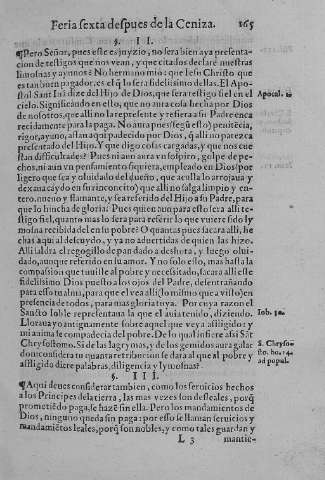 Feria sexta despues de la Ceniza. 165
§. II.
¶Pero Señor, pues este es juyzio, no sera bien aya presenta-
cion de testigos que nos vean, y que citados declarẽ nuestras
limosnas y ayunos? No hermano mio: que Iesu Christo que
es tan buen pagador, es el q̃ lo sera fidelissimo dellas. El Apo-
stol Sant Iuã dize del Hijo de Dios, que sera testigo fiel en el
Apocal. 1.
cielo. Significãdo en esto, que no aura cosa hecha por Dios
de nosotros, que alli no la represente y refiera a su Padre enca
recidamente para la paga. No aura pues (segũ esto) penitẽcia,
rigor, ayuno, afan aqui padecido por Dios, q̃ alli no parezca
presentado del Hijo. Y que digo cosas cargadas, y que nos cue
stan difficultades? Pues ni aun aura vn sospiro, golpe de pe-
chos, ni aũ vn pensamiento siquiera, empleado en Dios (por
ligero que sea y oluidado del dueño, que aculla lo arrojaua y
dexaua caydo en su rinconcito) que alli no salga limpio y en-
tero, nueuo y flamante, y sea referido del Hijo a su Padre, para
que lo hincha de gloria. Pues quien tan para esto sera alli te-
stigo fiel, quanto mas lo sera para referir lo que vuiere sido ly
mosna recibida del en su pobre? O quantas pues sacara alli, he
chas aqui al descuydo, y ya no aduertidas de quien las hizo.
Alli saldra el regogillo de pan dado a deshora, y luego olui-
dado, aunque referido en su amor. Y no solo esso, mas hasta la
compassion que tuuiste al pobre y necessitado, sacara alli este
fidelissimo Dios puesto a los ojos del Padre, desentrañando
para esso tu alma, para que el vea alli (lo mismo que a visto) en
presencia de todos, para mas gloria tuya. Por cuya razon el
Sancto Ioble representaua la que el auia tenido, diziendo.
Iob. 30.
Lloraua yo antiguamente sobre aquel que veya affligido: y
mi anima se compadecia del pobre. De lo qual infiere assi Sãt
Chrysostomo. Si de las lagrymas, y de los gemidos aura galar
S. Chryso-
don: considera tu quanta retribucion se dara al que al pobre y
sto. ho. 14.
affligido diere palabras, diligencia y lymosnas?
ad popul.
§. III.
¶Aqui deues considerar tambien, como los seruicios hechos
a los Principes dela tierra, las mas vezes son desleales, porq̃
prometiẽdo paga, se hazẽ sin ella. Pero los mandamientos de
Dios, ninguno queda sin paga: por esso se llaman seruicios y
mandamiẽtos leales, porq̃ son nobles, y como tales guardan y
L 3 mantie-